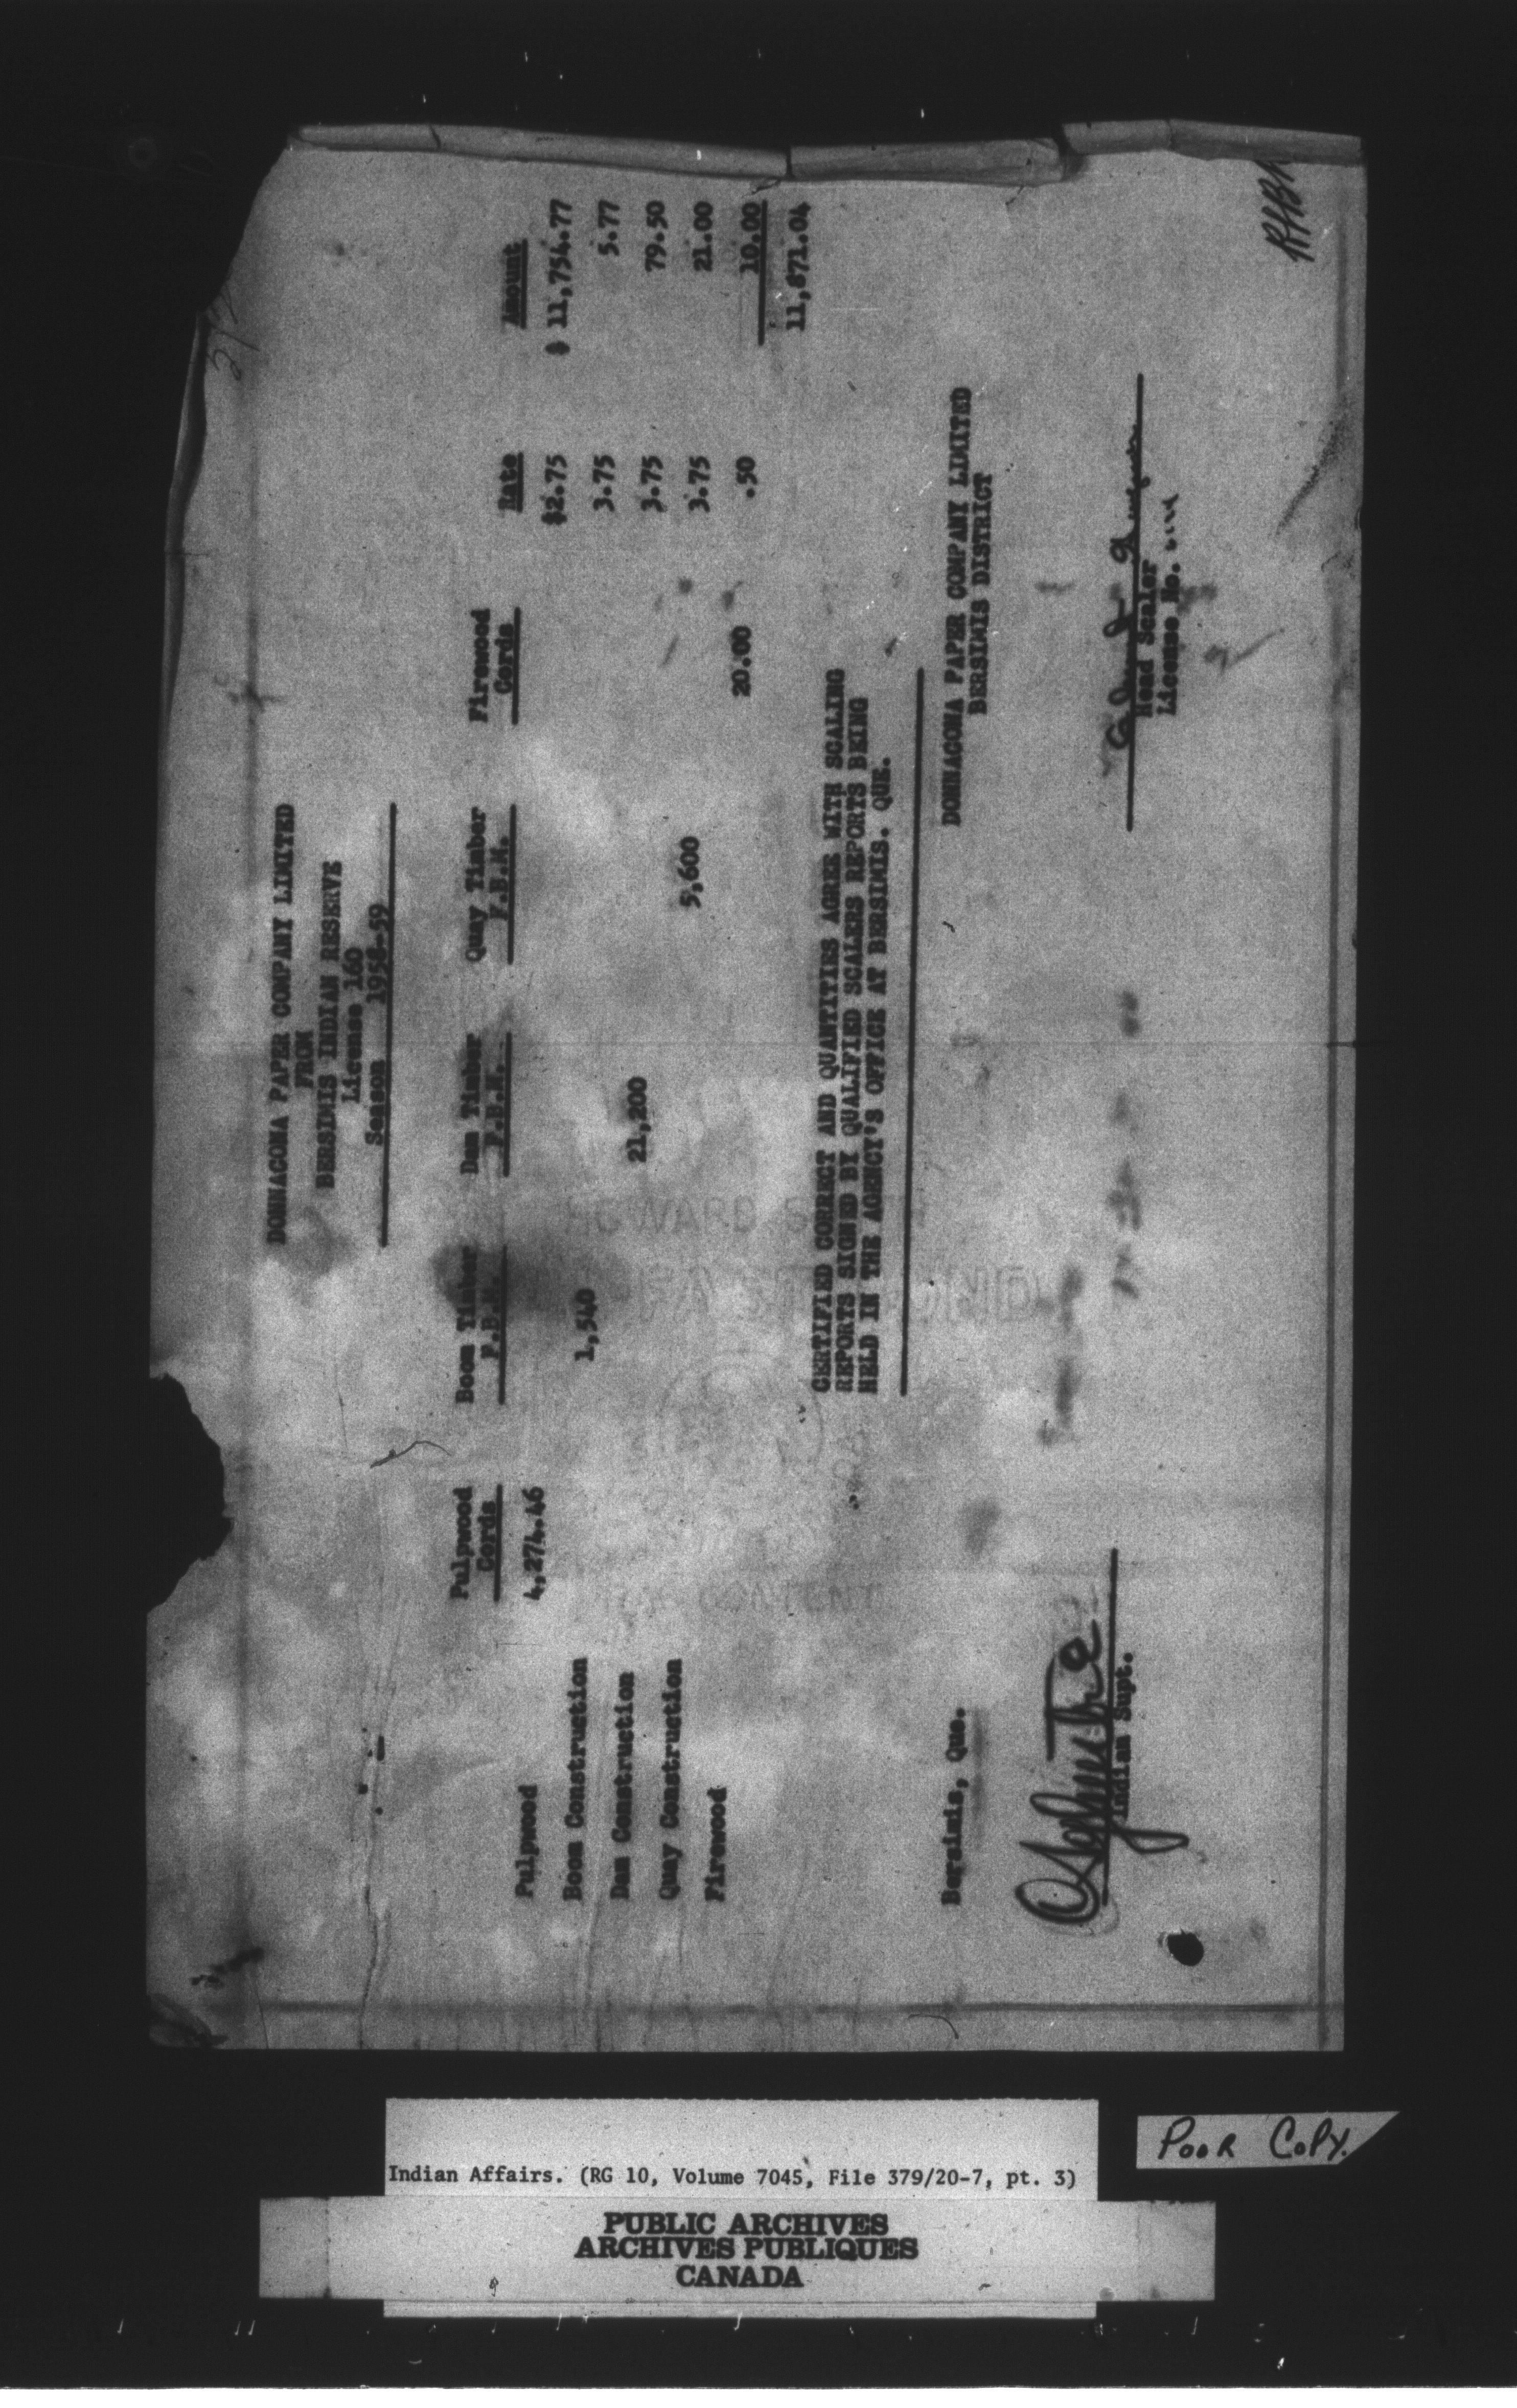 DONNACONA PAPER COMPANY LIMITED
FROM
BERSIMIS INDIAN RESERVE
License 160
Season 1958-59
Pulpwood Cords Boom Timber F.B.M. Dam Timber F.B.M. Quay Timber F.B.M. Firewood Cords Rate Amount
Pulpwood 4,274.46 $2.75 $ 11,754.77
Boom Construction 1,540 3.75 5.77
Dam Construction 21,200 3.75 79.50
Quay Construction 5,600 3.75 21.00
Firewood 20.00 .50 10.00
11,871.04
CERTIFIED CORRECT AND QUANTITIES AGREE WITH SCALING
REPORTS SIGNED BY QUALIFIED SCALERS REPORTS BEING
HELD IN THE AGENCY'S OFFICE AT BERSIMIS. QUE.
Bersimis, Que.
DONNACONA PAPER COMPANY LIMITED
BERSIMIS DISTRICT
Indian Supt.
Head Scaler
License No.
HOWARD
BOND
CONTENT
POOR COPY.
Indian Affairs. (RG 10, Volume 7045, File 379/20-7, pt. 3)
PUBLIC ARCHIVES
ARCHIVES PUBLIQUES
CANADA